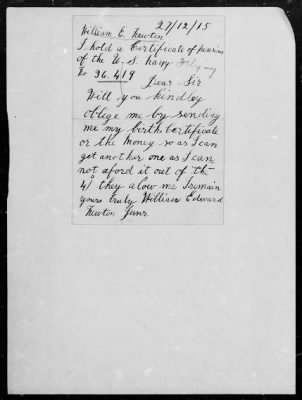 27/12/15
William E. Newton
I hold a Certificate of pension
of the U. S. navy
No 36.419
Dear Sir
Will you kindley
oblege me by sending
me my birth Certificate
or the money so as I can
get another one as I can
not aford it out of the
they alow me I remain
yours truly William Edward
Newton Junr